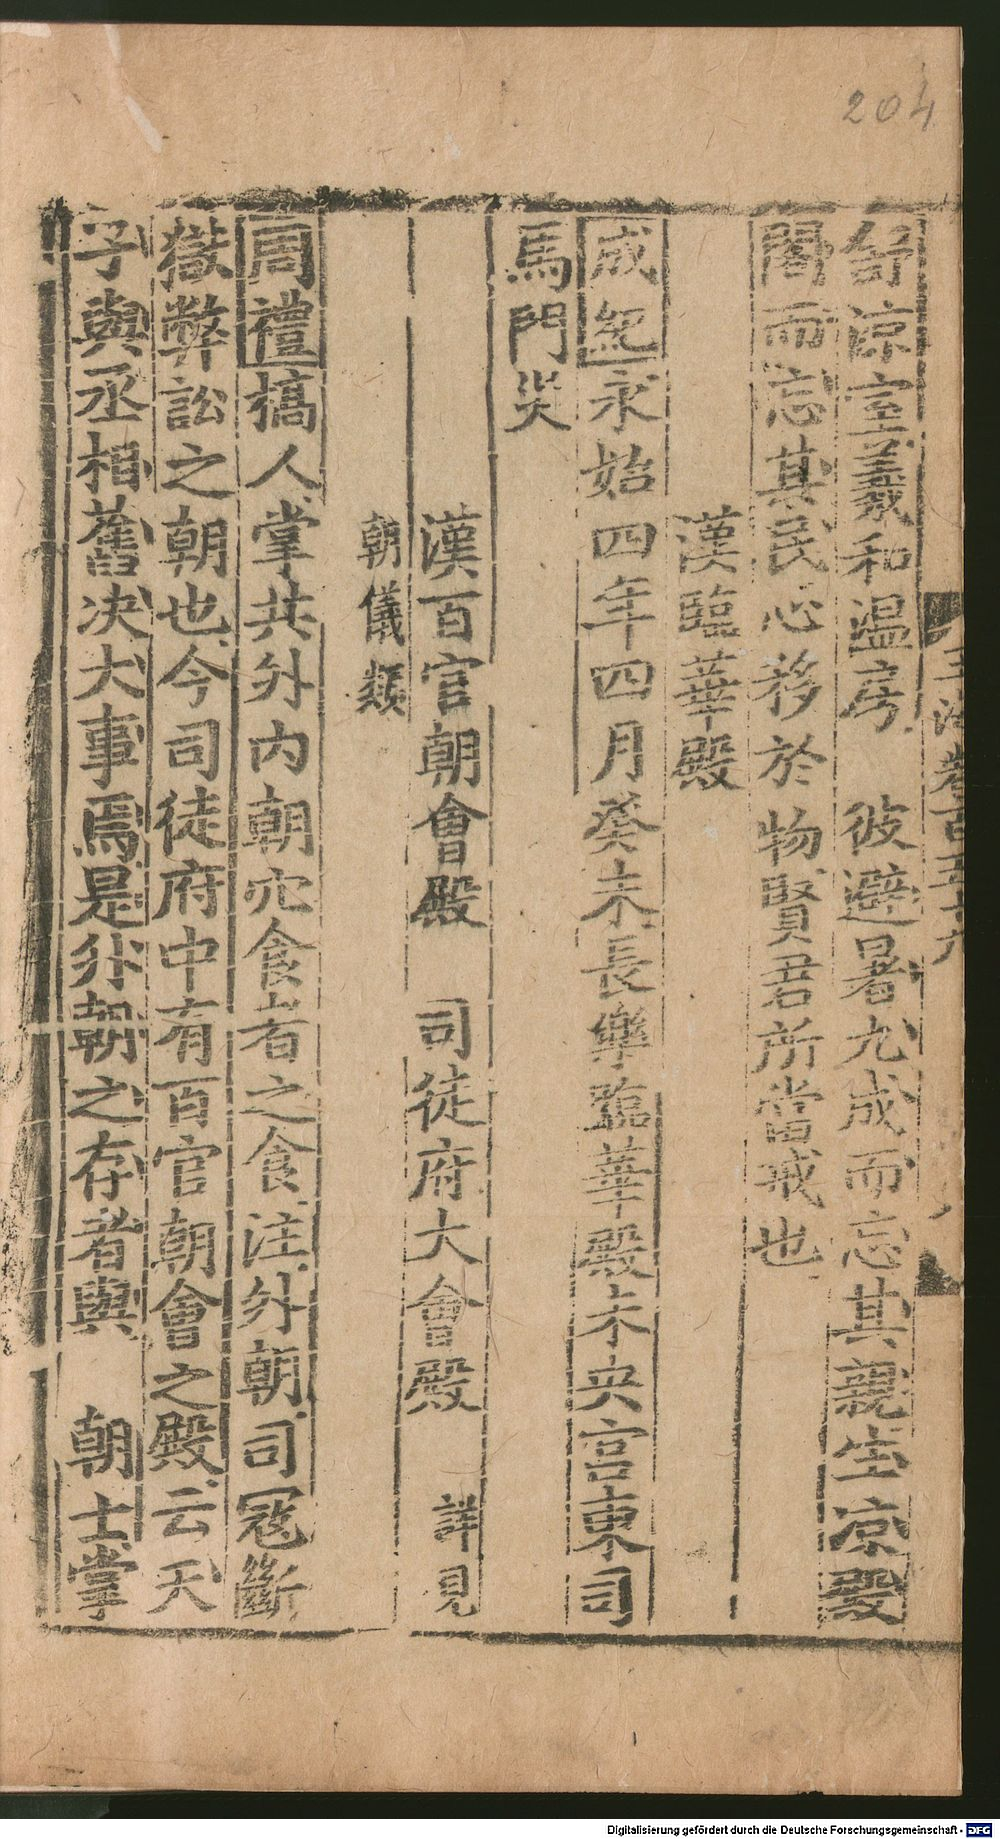 204
玉海卷百五十六
舒涼室義和溫房　彼避暑九成而忘其親坐凉殿
閣而忘其民心移於物賢君所當戒也
漢臨華殿
成紀永始四年四月癸未長樂臨華殿未央宫東司
馬門災
漢百官朝會殿　司徒府大會殿　詳見
朝儀類
周禮槁人掌共外内朝宂食者之食注外朝司冦斷
獄弊訟之朝也今司徒府中有百官朝會之殿云天
子與丞相舊决大事焉是外朝之存者與　朝士掌
Digitalisierung gefördert durch die Deutsche Forschungsgemeinschaft - DFG